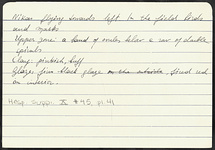 Nikai flying towards left in the field birds
and masks
Upper zone: a band of ovules below a row of double
spirals
Clay: pinkish, buff
Glaze: fine black glaze on the outside, fired red
on interior.
Hesp. Suppl. X #45, p. 41